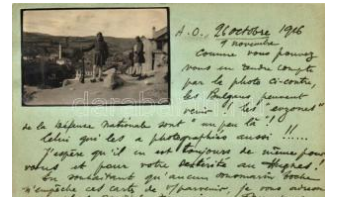 A.O., 26 octobre 1916
9 novembre
Comme vous pouvez
vous en rendre compte
par la photo ci-contre,
les Bulgares peuvent
venir : les "evzones"
de la Défense Nationale sont "un peu là" !
Celui qui les a photographiés aussi !!....
J'espère qu'il en est toujours de même pour
vous et pour votre au Hughes !
En souhaitant qu'aucun sous-marin boche
n'empêche cet carte de parvenir, je vous adresse
darabanth